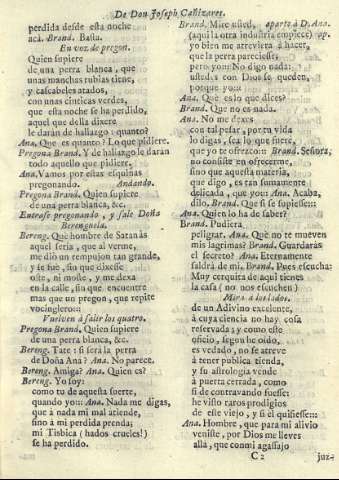 De Don Joseph Cañizares.
perdida desde esta noche
acá. Brand. Basta.
En voz de pregon.
Quien supiere
de una perra blanca, que
unas manchas rubias tiene,
y cascabeles atados,
con unas cinticas verdes,
que esta noche se ha perdido,
aquel que della diere
le darán de hallazgo: quanto?
Ana. Que es quanto? Lo que pidiere.
Pregona Brand. Y de hallazgo le darán
todo aquello que pidiere.
Ana. Vamos por estas esquinas
pregonando. Andando.
Pregona Brand. Quien supiere
de una perra blanca, &c.
Entrase pregonando, y sale Doña
Berenguela.
Bereng. Què hombre de Satanàs
aquel seria, que al verme,
me diò un rempujon tan grande,
y se fue, sin que dixesse
oste, ni moste, y me dexa
en la calle, sin que encuentre
mas que un pregon, que repite
vocinglero:::
Vuelven à salir los quatro.
Pregona Brand. Quien supiere
de una perra blanca, &c.
Bereng. Tate: si serà la perra
de Doña Ana? Ana. No parece.
Bereng. Amiga? Ana. Quien es?
Bereng. Yo soy:
como tu de aquesta suerte,
quando yo::: Ana. Nada me digas,
que à nada mi mal atiende,
sino à mi perdida prenda;
mi Tisbica (hados crueles!)
se ha perdido.
Brand. Mire usted, aparte à D. Ana.
(aqui la otra industria empiece) ap.
yo bien me atreviera à hacer,
que la perra pareciesse;
pero yo::: No digo nada:
ustedes con Dios se queden,
porque yo:::
Ana. Què es lo que dices?
Brand. Que no es nada.
Ana. No me dexes
con tal pesar, por tu vida
lo digas, sea lo que fuere,
que yo te ofrezco::: Brand. Señora,
no consiste en ofrecerme,
sino que aquesta materia,
que digo, es tan sumamente
delicada, que yo::: Ana. Acaba,
dilo. Brand. Que si se supiesse:::
Ana. Quien lo ha de saber?
Brand. Pudiera
peligrar. Ana. Què no te mueven
mis lagrimas? Brand. Guardaràs
el secreto? Ana. Eternamente
saldrà de mi. Brand. Pues escucha:
Muy cerquita de aqui tienes
la casa (no nos escuchen)
Mira à los lados.
de un Adivino excelente,
à cuya ciencia no hay cosa
reservada; y como este
oficio, segun he oido,
es vedado, no se atreve
à tener publica tienda,
y su astrologia vende
à puerta cerrada, como
si de contravando fuesse:
he visto raros prodigios
de este viejo, y si èl quisiesse:::
Ana. Hombre, que para mi alivio
veniste, por Dios me lleves
allà, que con mi agassajo
C 2
juz-